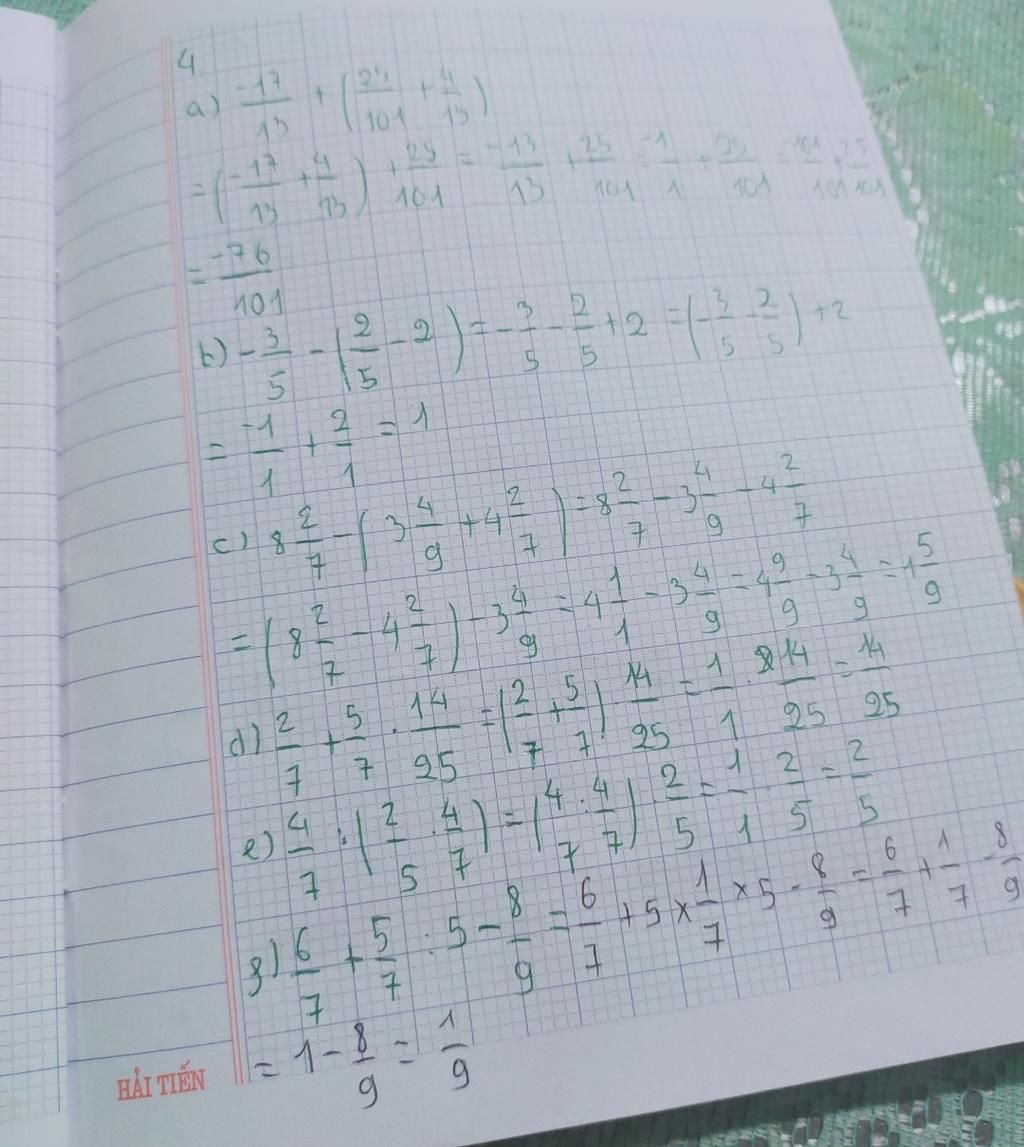 4
a) -17/13 + (25/101 + 4/13)
= (-17/13 + 4/13) + 25/101 = -13/13 + 25/101 = -1/1 + 25/101 = -101/101 + 25/101
= -76/101
b) -3/5 - (2/5 - 2) = -3/5 - 2/5 + 2 = (-3/5 - 2/5) + 2
= -1/1 + 2/1 = 1
c) 8 2/7 - (3 4/9 + 4 2/7) = 8 2/7 - 3 4/9 - 4 2/7
= (8 2/7 - 4 2/7) - 3 4/9 = 4 1/1 - 3 4/9 = 4 9/9 - 3 4/9 = 1 5/9
d) 2/7 + 5/7 . 14/25 = (2/7 + 5/7) . 14/25 = 1/1 . 14/25 = 14/25
e) 4/7 : (2/5 . 4/7) = (4/7 : 4/7) . 2/5 = 1/1 . 2/5 = 2/5
g) 6/7 + 5/7 : 5 - 8/9 = 6/7 + 5 × 1/7 × 5 - 8/9 = 6/7 + 1/7 - 8/9
= 1 - 8/9 = 1/9
HẢI TIẾN